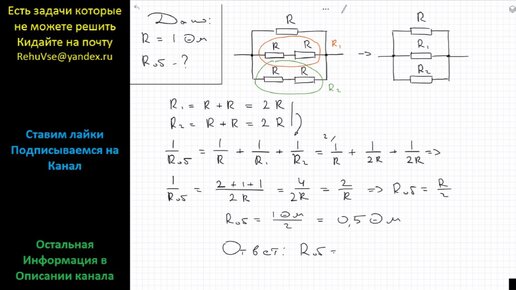 Есть задачи которые
не можете решить
Кидайте на почту
RehuVse@yandex.ru
Ставим лайки
Подписываемся на
Канал
Остальная
Информация в
Описании канала
Дано:
R = 1 Ом
Rоб - ?
R
R R R₁
R R R₂
→
R
R₁
R₂
R₁ = R + R = 2R
R₂ = R + R = 2R
1/Rоб = 1/R + 1/R₁ + 1/R₂ = ²⁾1/R + 1/2R + 1/2R ⇒
1/Rоб = (2+1+1)/2R = 4/2R = 2/R ⇒ Rоб = R/2
Rоб = 1 Ом/2 = 0,5 Ом
Ответ: Rоб =